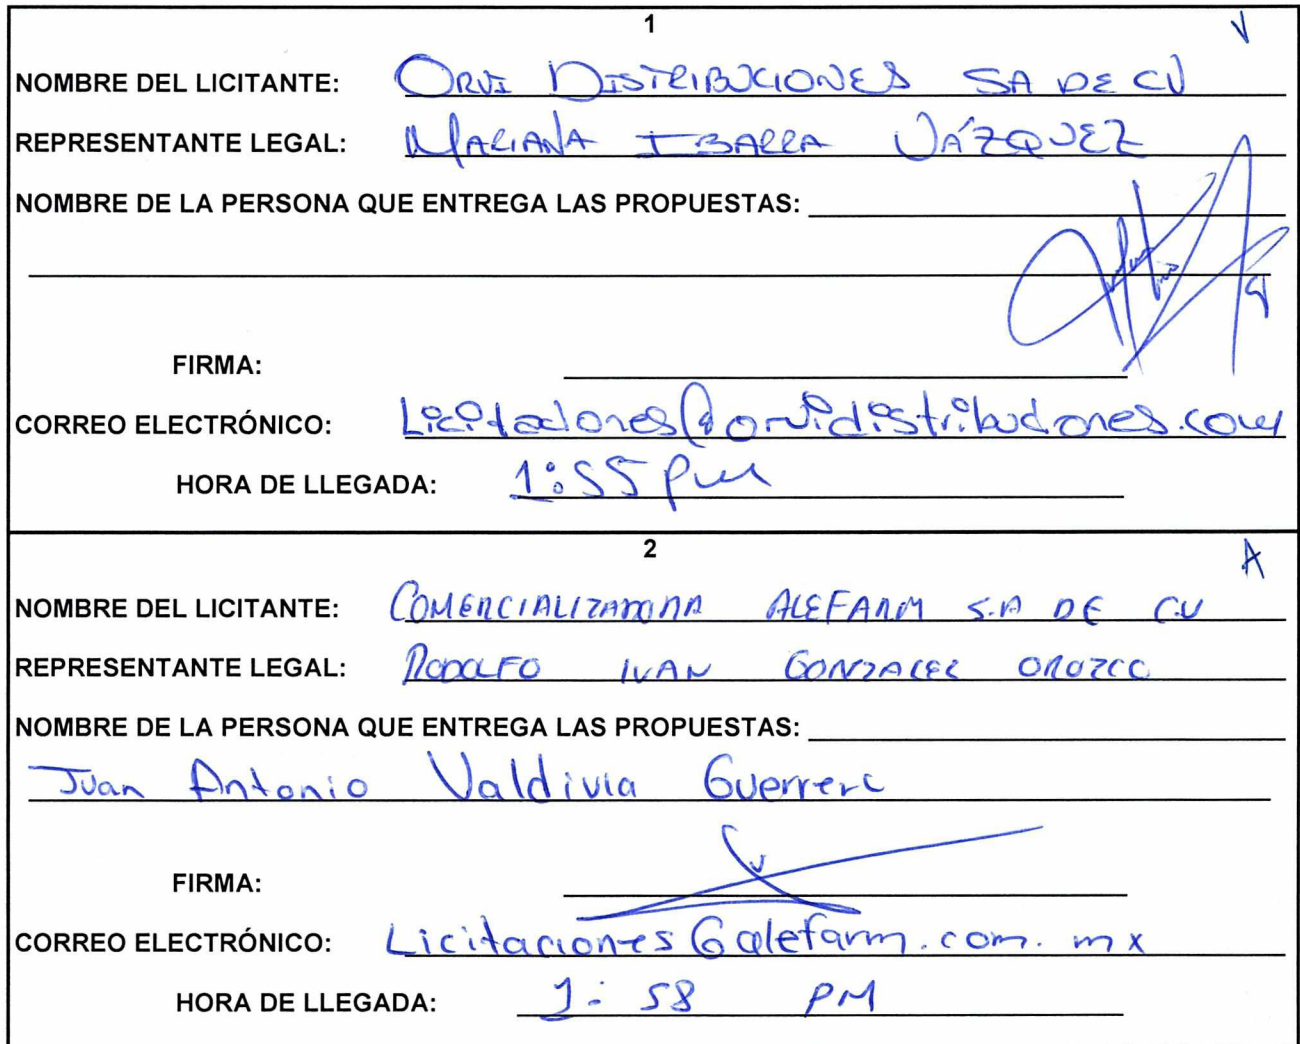 1
V
NOMBRE DEL LICITANTE: ORVI DISTRIBUCIONES SA DE CV
REPRESENTANTE LEGAL: MARIANA IBARRA VÁZQUEZ
NOMBRE DE LA PERSONA QUE ENTREGA LAS PROPUESTAS:
FIRMA:
CORREO ELECTRÓNICO: Licitaciones@orvidistribuciones.com
HORA DE LLEGADA: 1:55 pm
2
A
NOMBRE DEL LICITANTE: COMERCIALIZADORA ALEFARM S.A DE C.V
REPRESENTANTE LEGAL: RODOLFO IVAN GONZALEZ OROZCO
NOMBRE DE LA PERSONA QUE ENTREGA LAS PROPUESTAS:
Juan Antonio Valdivia Guerrero
FIRMA:
CORREO ELECTRÓNICO: Licitaciones@alefarm.com.mx
HORA DE LLEGADA: 1:58 PM